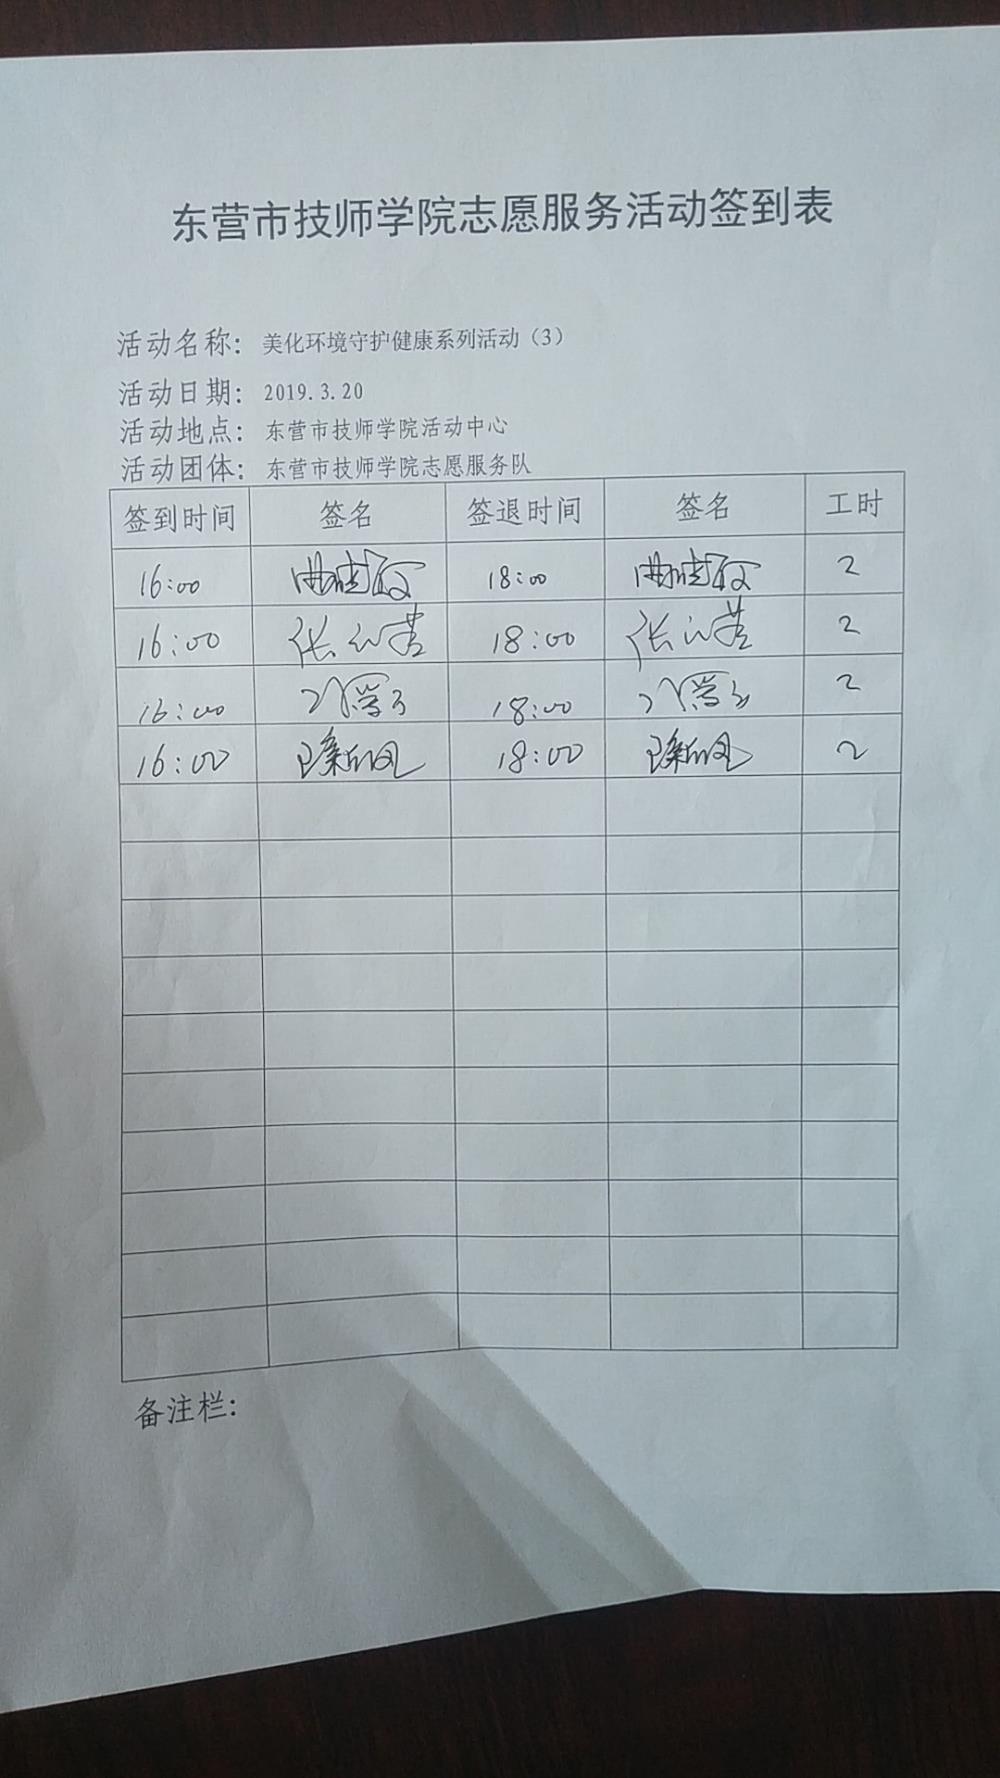 东营市技师学院志愿服务活动签到表
活动名称： 美化环境守护健康系列活动（3）
活动日期： 2019.3.20
活动地点： 东营市技师学院活动中心
活动团体： 东营市技师学院志愿服务队
签到时间 签名 签退时间 签名 工时
16:00 18:00 2
16:00 张 18:00 张 2
16:00 18:00 2
16:00 18:00 2
备注栏：